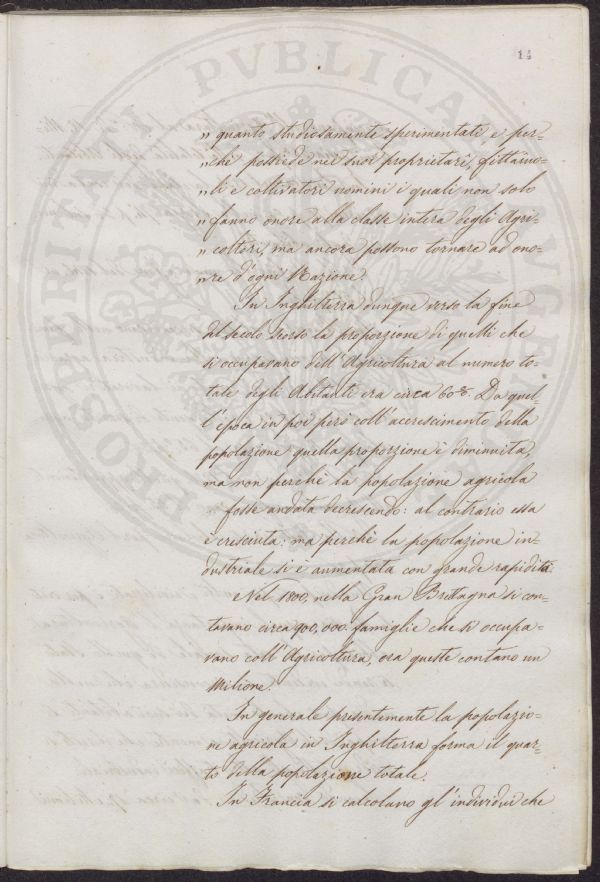 14
" quanto studiosamente sperimentate, e per-
" che possiede nei suoi proprietari, fittaiuo-
" li e coltivatori uomini i quali non solo
" fanno onore alla classe intera degli Agri-
" coltori, ma ancora possono tornare ad ono-
" re d'ogni Nazione.
In Inghilterra dunque verso la fine
del secolo scorso la proporzione di quelli che
si occupavano dell'Agricoltura al numero to-
tale degli Abitanti era circa 60
Da quel-
l'epoca in poi però coll'accrescimento della
popolazione quella proporzione è diminuita,
ma non perchè la popolazione agricola
fosse andata decrescendo: al contrario essa
è cresciuta: ma perchè la popolazione in-
dustriale si è aumentata con grande rapidità.
Nel 1800, nella Gran Brettagna si con-
tavano circa 900,000. famiglie che si occupa-
vano coll'Agricoltura, ora queste contano un
Milione.
In generale presentemente la popolazio-
ne agricola in Inghilterra forma il quar-
to della popolazione totale.
In Francia si calcolano gl'individui che
PROSPERITA PVBLICA AVGENDA